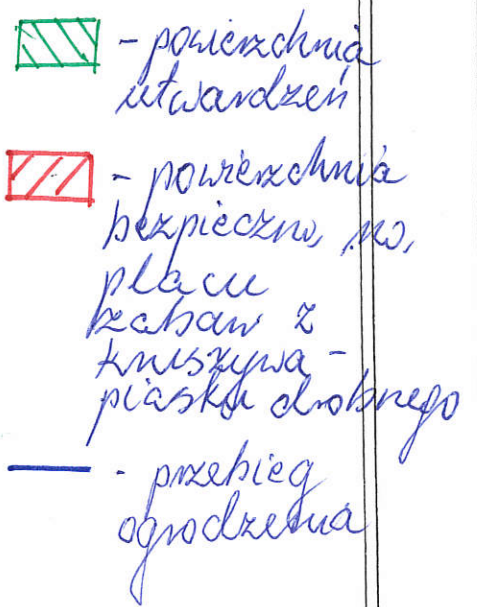 - powierzchnia
utwardzeń
- powierzchnia
bezpieczna na
placu
zabaw z
kruszywa -
piasku drobnego
- przebieg
ogrodzenia